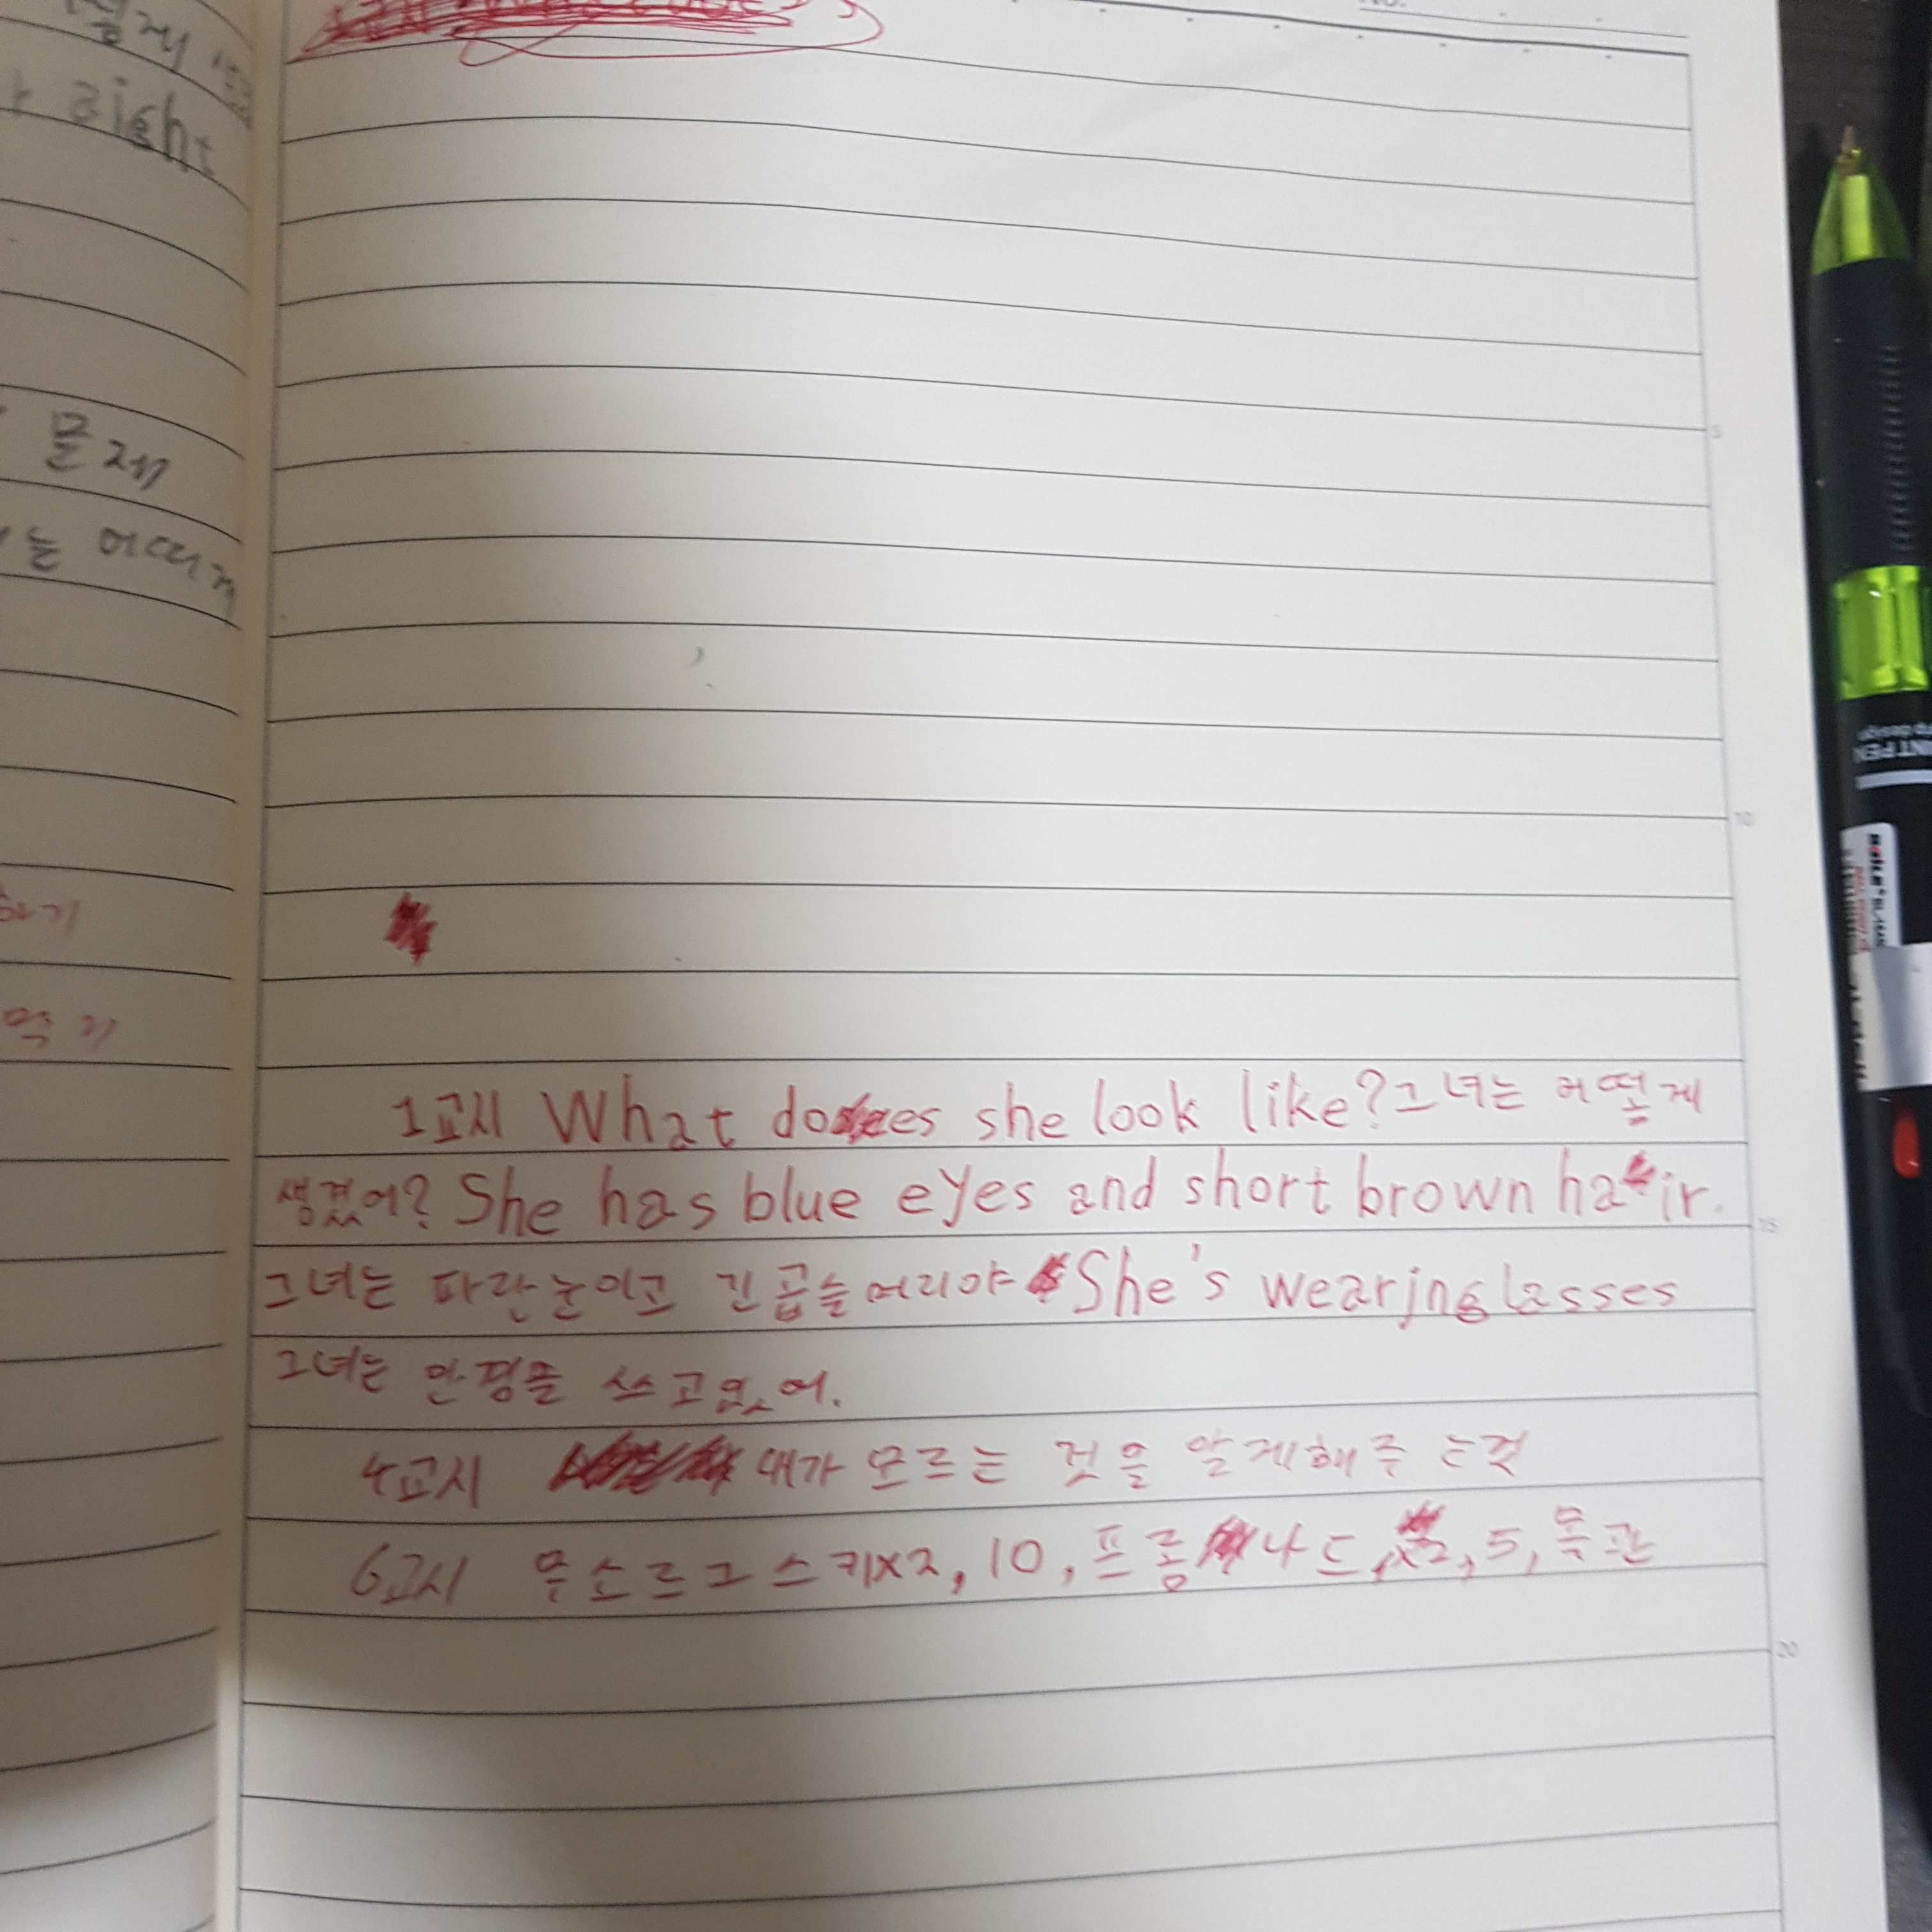 문제
는 어떠게
하기
먹기
1교시 What does she look like? 그녀는 어떻게
생겼어? She has blue eyes and short brown hair.
그녀는 파란눈이고 긴 곱슬머리야 She's wearing glasses
그녀는 안경을 쓰고있어.
4교시 내가 모르는 것을 알게해주는것
6교시 무소르그스키x2, 10, 프롬나드, x2, 5, 목관
5
10
15
20